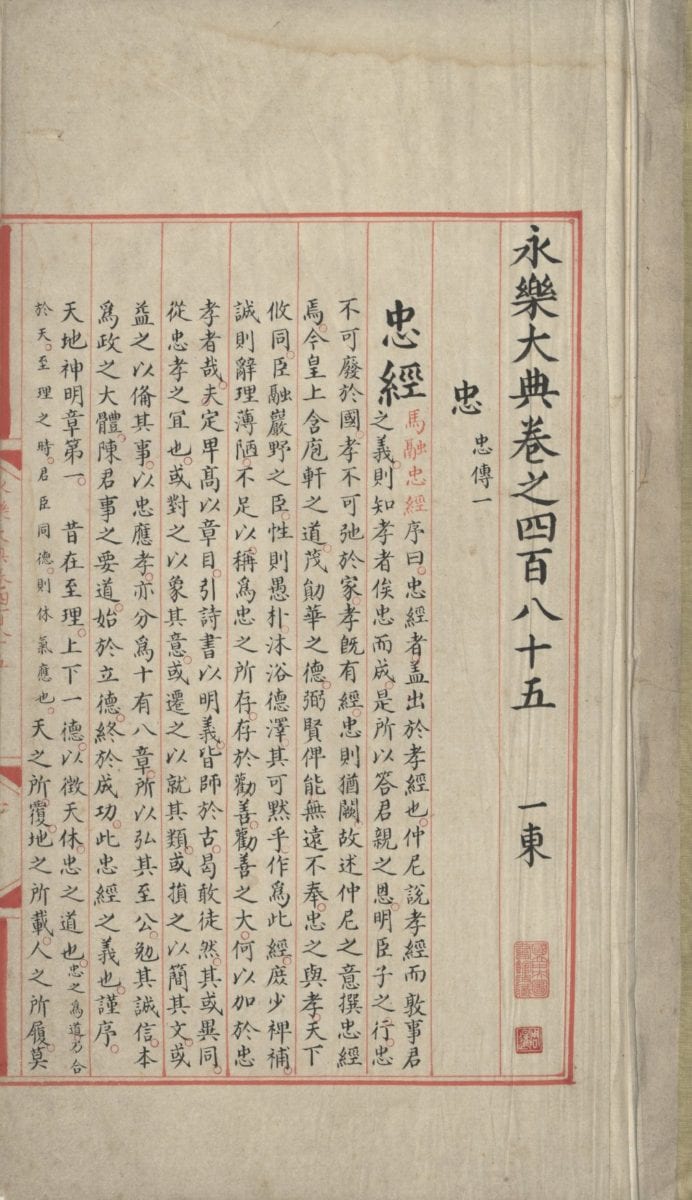 永樂大典卷之四百八十五 一東
忠 忠傳一
忠經 馬融忠經序曰。忠經者。蓋出於孝經也。仲尼說孝經而敦事君
之義。則知孝者。俟忠而成。是所以答君親之恩。明臣子之行。忠
不可廢於國。孝不可弛於家。孝旣有經。忠則猶闕。故述仲尼之意。撰忠經
焉。今皇上含庖軒之道。茂勛華之德。弼賢俾能。無遠不奉。忠之與孝。天下
攸同。臣融巖野之臣。性則愚朴。沐浴德澤。其可默乎。作爲此經。庶少裨補。
誠則辭理薄陋。不足以稱爲忠之所存。存於勸善。勸善之大。何以加於忠
孝者哉。夫定卑髙以章目。引詩書以明義。皆師於古。曷敢徒然。其或異同。
從忠孝之冝也。或對之以象其意。或遷之以就其類。或損之以簡其文。或
益之以俻其事。以忠應孝。亦分爲十有八章。所以弘其至公。勉其誠信。本
爲政之大體。陳君事之要道。始於立德。終於成功。此忠經之義也。謹序。
天地神明章第一。 昔在至理。上下一德。以徴天休。忠之道也。忠之爲道乃合
於天。至理之時。君臣同德。則休氣應也。天之所覆。地之所載。人之所履。莫